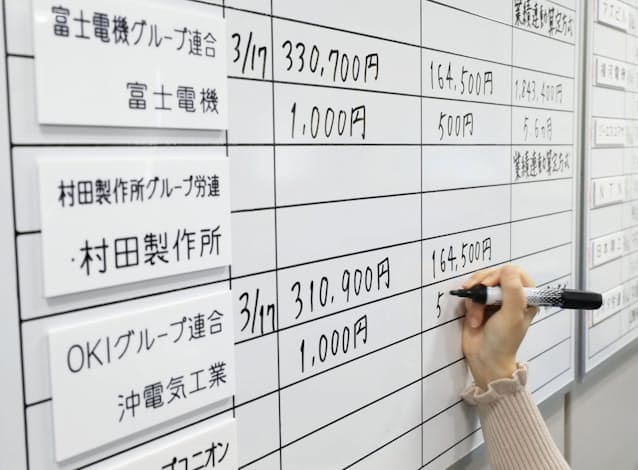 富士電機グループ連合
富士電機
3/17
330,700円
164,500円
1,843,400円
1,000円
500円
5.6ヵ月
業績連動の算定方式
村田製作所グループ労連
村田製作所
OKIグループ連合
沖電気工業
3/17
310,900円
164,500円
1,000円
5
業績連動の算定方式
アズビル
横河電機
NTN
ユニオン